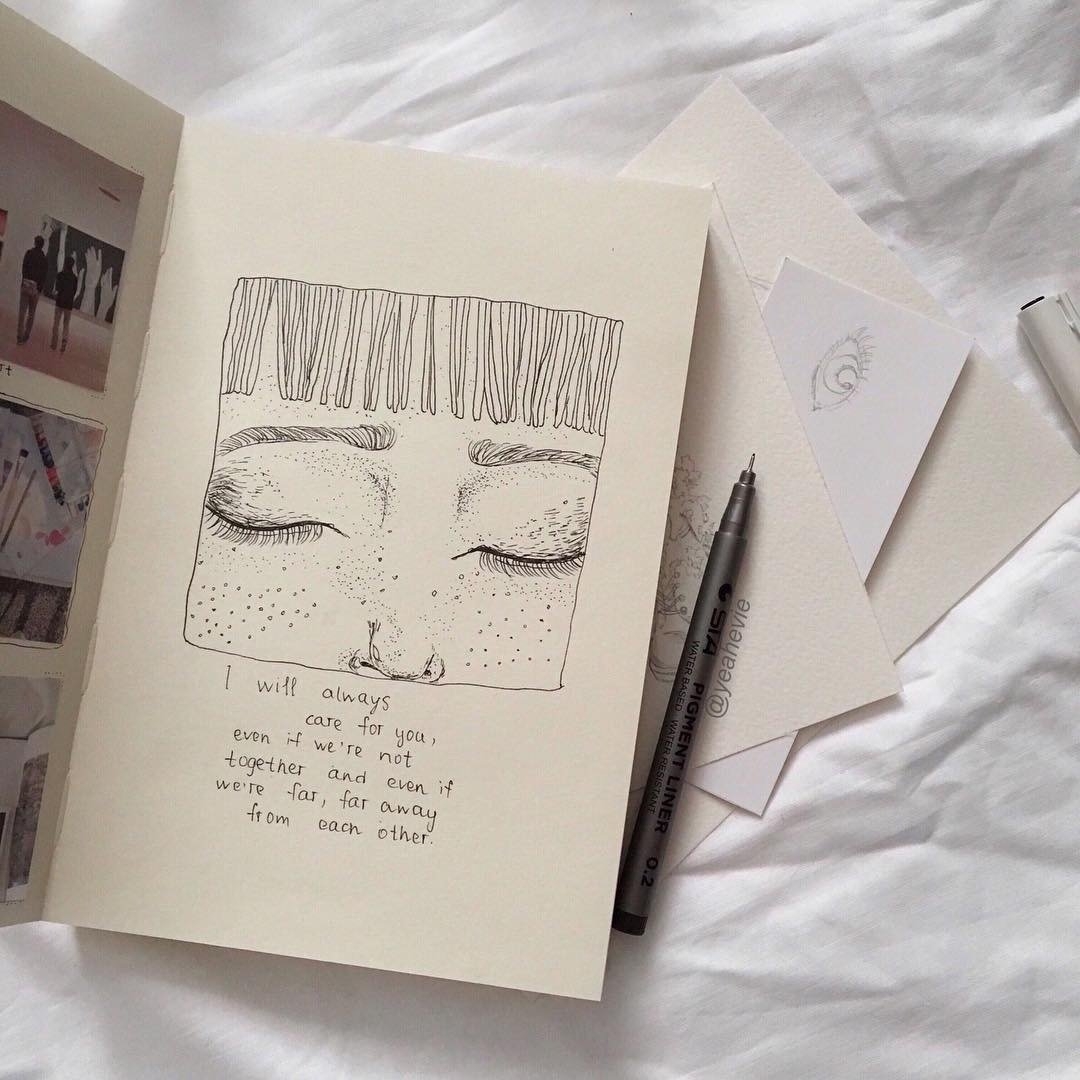 I will always
care for you,
even if we're not
together and even if
we're far, far away
from each other.
STA PIGMENT LINER 0.2
WATER BASED WATER RESISTANT
@yeahevie